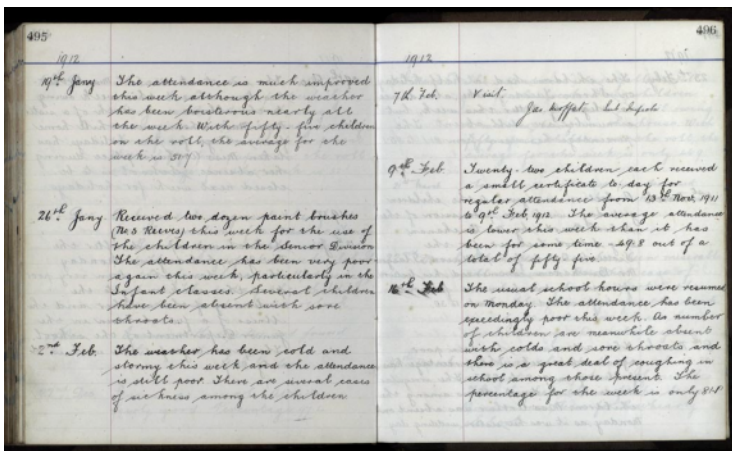 495
1912
19th Jany
The attendance is much improved
this week although the weather
has been boisterous nearly all
the week. With fifty-five children
on the roll, the average for the
week is 50.7
26th Jany
Received two dozen paint brushes
(No 3 Reeves) this week for the use of
the children in the Senior Division
The attendance has been very poor
again this week, particularly in the
Infant classes. Several children
have been absent with sore
throats.
2nd Feb.
The weather has been cold and
stormy this week and the attendance
is still poor. There are several cases
of sickness among the children
496
1912
7th Feb.
Visit.
Jas Moffat,
9th Feb.
Twenty-two children each received
a small certificate to-day for
regular attendance from 13th Nov. 1911
to 9th Feb. 1912. The average attendance
is lower this week than it has
been for some time - 49.8 out of a
total of fifty five.
16th Feb
The usual school hours were resumed
on Monday. The attendance has been
exceedingly poor this week. As number
of children are meanwhile absent
with colds and sore throats and
there is a great deal of coughing in
school among those present. The
percentage for the week is only